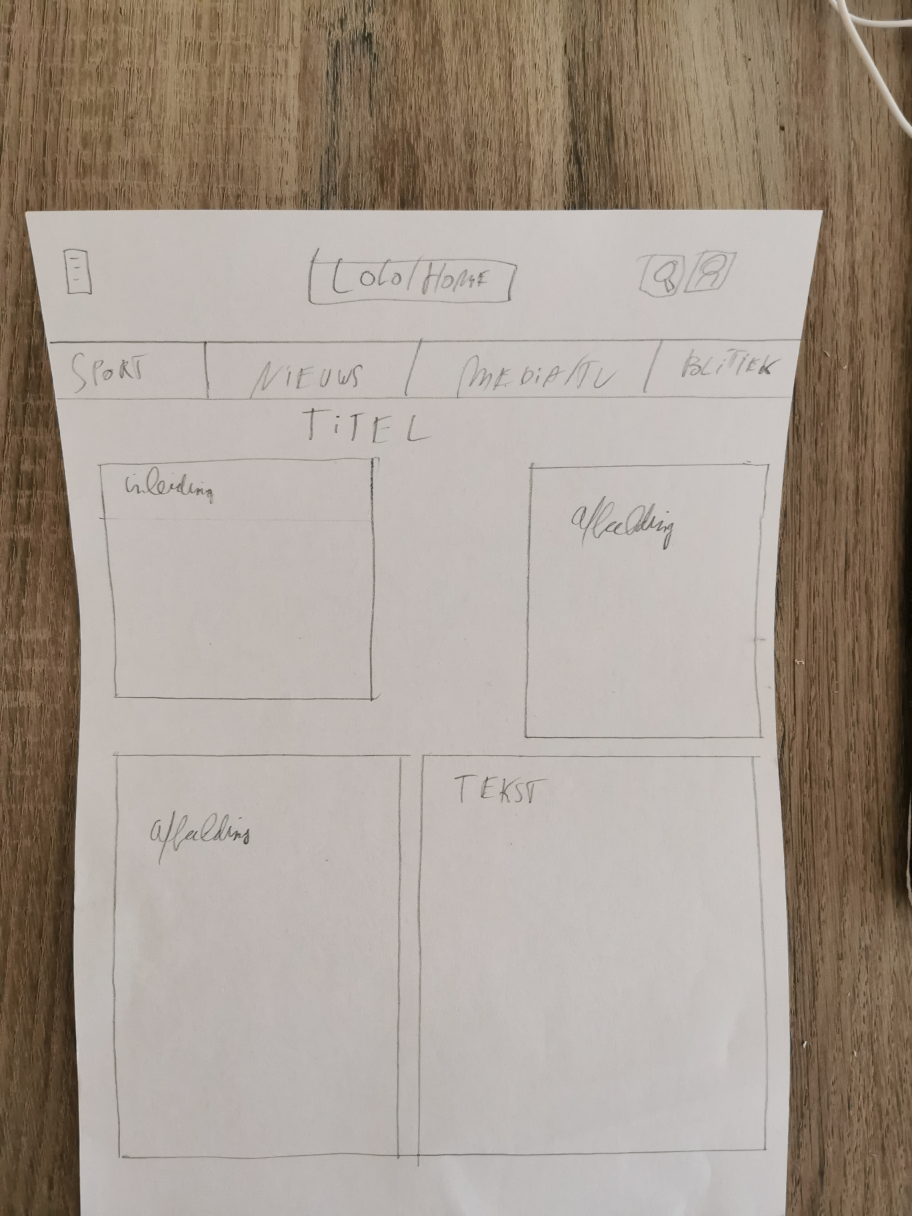 LOGO/HOME
SPORT NIEUWS MEDIA/TV POLITIEK
TiTEL
inleiding
afbeelding
afbeelding
TEKST